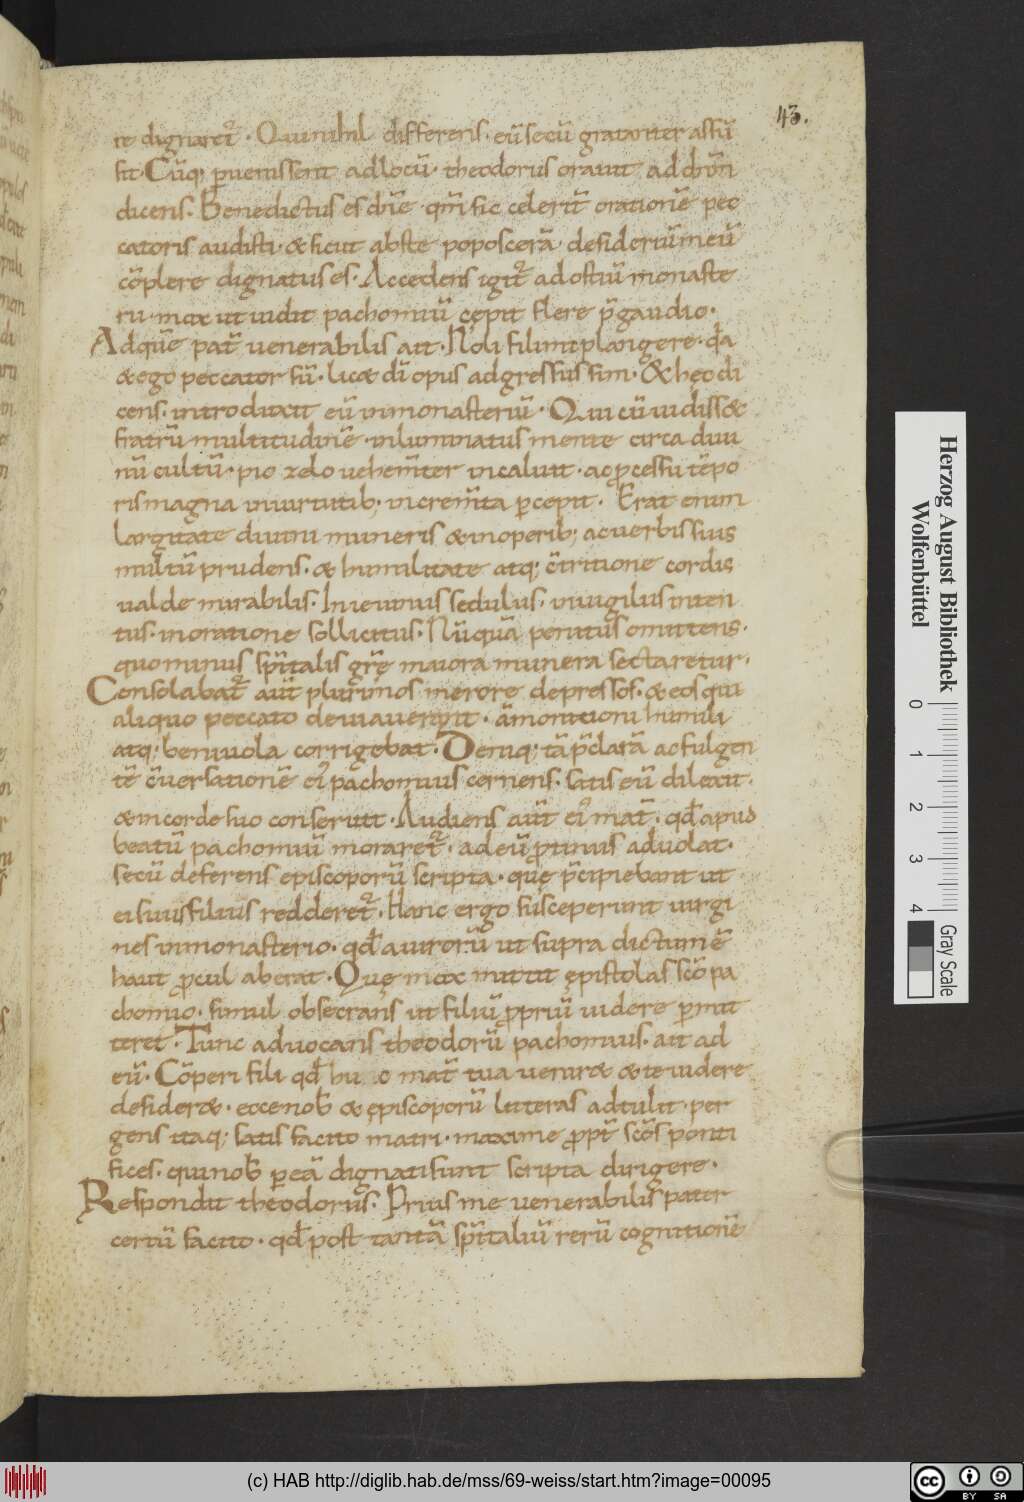 43.
te dignaret᷒ · Qui nihil differens · eū secū gratanter assū
sit · Cūq; puenissent ad locū · theodorus orauit ad dn̄m
dicens · Benedictus es dn̄e · qm̄ sic celerit̄ orationē pec
catoris audisti · & sicut abste poposcerā · desideriū meū
cōplere dignatus es · Accedens igit᷒ ad ostiū monaste
rii · mox ut uidit pachomiū cępit flere p̄ gaudio ·
Ad quē pat̄ uenerabilis ait · Noli fili mi plangere · qa
& ego peccator sū · lic& dī opus adgressus sim · & hęc di
cens · introduxit eū in monasteriū · Qui cū uidiss&
fratrū multitudinē · inluminatus mente circa diui
nū cultū · pio zelo uehem̄ter incaluit · ac pcessu tēpo
ris magna in uirtutib; increm̄ta pcepit · Erat enim
largitate diuini muneris & in operib; ac uerbis suis
multū prudens · & humilitate atq; c̄tritione cordis
ualde mirabilis · In ieiuniis sedulus · in uigiliis inten
tus · in oratione sollicitus · Nūquā penitus omittens ·
quominus sp̄italis gr̄ę maiora munera sectaretur ·
Consolabat᷒ aut̄ plurimos merore depressos · & eos qui
aliquo peccato deuiauerunt · āmonitioni humili
atq; beniuola corrigebat · Deniq; tā p̄clarā ac fulgen
tē c̄uersationē ei᷒ pachomius cernens · satis eū dilexit ·
& in corde suo conseruit · Audiens aut̄ ei᷒ mat̄ · qd̄ apud
beatū pachomiū moraret᷒ · ad eū ptinus aduolat ·
secū deferens episcoporū scripta · quę p̄cipiebant ut
ei suus filius redderet᷒ · Hanc ergo susceperunt uirgi
nes in monasterio · qd̄ a uirorū ut supra dictum ē
haut pcul aberat · Quę mox mittit ępistolas sc̄o pa
chomio · simul obsecrans ut filiū ppriū uidere pmit
teret · Tunc aduocans theodorū pachomius · ait ad
eū · Cōperi fili qd̄ hu c mat̄ tua uenir& & te uidere
desider& · ecce nob̄ & ępiscoporū litteras adtulit · per
gens itaq; satis facito matri · maxime ppt̄ sc̄os ponti
fices · qui nob̄ p eā dignati sunt scripta dirigere ·
Respondit theodorus · Prius me uenerabilis pater
certū facito · qd̄ post tantā sp̄italiū rerū cognitionē
Herzog August Bibliothek
Wolfenbüttel
0 1 2 3 4
Gray Scale
(c) HAB http://diglib.hab.de/mss/69-weiss/start.htm?image=00095
cc BY SA